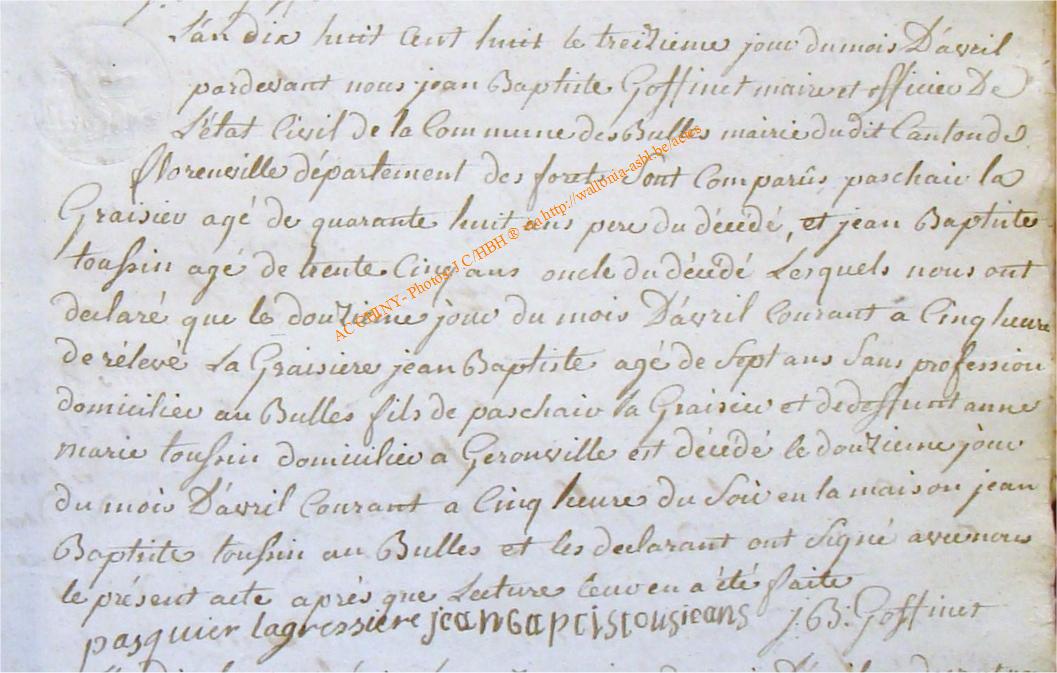 L'an dix huit Cent huit le treizieme jour du mois D'avril
pardevant nous jean Baptiste Goffinet maire et officier De
L'état Civil de la Commune des Bulles mairie dudit Canton de
florenville département des forets Sont Comparûs paschair la
Graisier agé de quarante huit ans pere du décédé, et jean Baptiste
toussin agé de trente Cinq ans oncle du décédé Lesquels nous ont
declaré que le douzieme jour du mois D'avril Courant a Cinq heure
de rélevé La Graisiere jean Baptiste agé de Sept ans Sans profession
domicilier au Bulles fils de paschair la Graisier et de deffunt anne
marie toussin domicilier a Geronville est décédé le douzieme jour
du mois D'avril Courant a Cinq heure du Soir en la maison jean
Baptiste toussin au Bulles et les declarant ont Signé avec nous
le présent acte après que Lecture leur en a été faite
pasquier lagressiere jean baptis tousieans J.B: Goffinet
AC GPINY- Photos J C/HBH ® via http://wallonia-asbl.be/actes